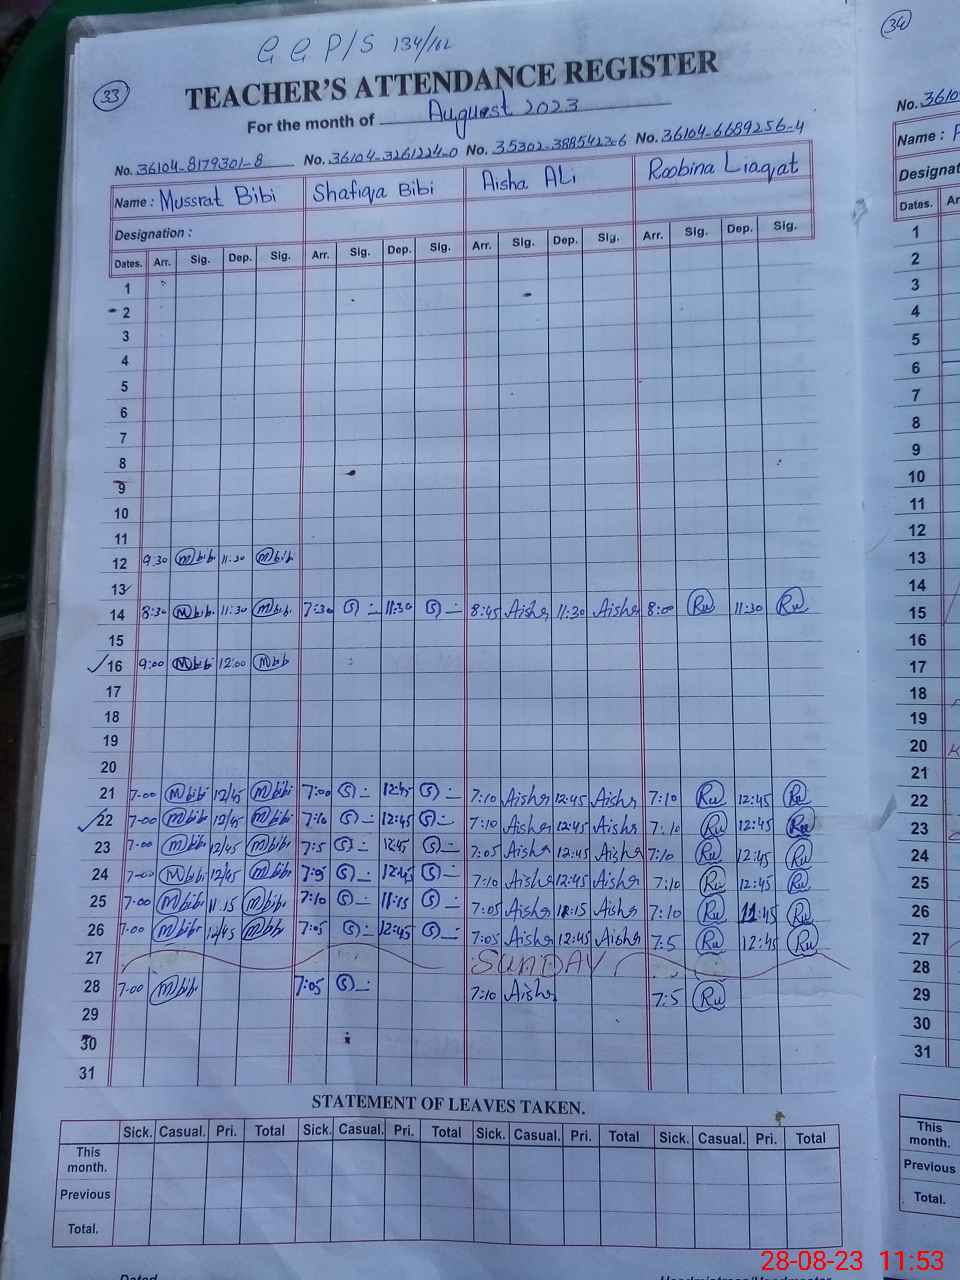 G G P/S 134/16L
33
TEACHER'S ATTENDANCE REGISTER
For the month of August 2023
No. 36104-8179301-8 No. 36104-3261224-0 No. 35302-3885423-6 No. 36104-6689256-4
Name : Mussrat Bibi Shafiqa Bibi Aisha ALi Roobina Liaqat
Designation :
Dates. Arr. Sig. Dep. Sig. Arr. Sig. Dep. Sig. Arr. Sig. Dep. Sig. Arr. Sig. Dep. Sig.
1
2
3
4
5
6
7
8
9
10
11
12 9:30 Mbibi 11:30 Mbibi
13
14 8:30 Mbibi 11:30 Mbibi 7:30 S 11:30 S 8:45 Aisha 11:30 Aisha 8:00 Ru 11:30 Ru
15
16 9:00 Mbibi 12:00 Mbibi
17
18
19
20
21 7-00 Mbibi 12/45 Mbibi 7:00 S 12:45 S 7:10 Aisha 12:45 Aisha 7:10 Ru 12:45 Ru
22 7-00 Mbibi 12/45 Mbibi 7:10 S 12:45 S 7:10 Aisha 12:45 Aisha 7:10 Ru 12:45 Ru
23 7-00 Mbibi 12/45 Mbibi 7:5 S 12:45 S 7:05 Aisha 12:45 Aisha 7:10 Ru 12:45 Ru
24 7-00 Mbibi 12/45 Mbibi 7:05 S 12:45 S 7:10 Aisha 12:45 Aisha 7:10 Ru 12:45 Ru
25 7-00 Mbibi 11:15 Mbibi 7:10 S 11:15 S 7:05 Aisha 11:15 Aisha 7:10 Ru 11:45 Ru
26 7-00 Mbibi 12/45 Mbibi 7:05 S 12:45 S 7:05 Aisha 12:45 Aisha 7:5 Ru 12:45 Ru
27 SUNDAY
28 7-00 Mbibi 7:05 S 7:10 Aisha 7:5 Ru
29
30
31
STATEMENT OF LEAVES TAKEN.
Sick. Casual. Pri. Total Sick. Casual. Pri. Total Sick. Casual. Pri. Total Sick. Casual. Pri. Total
This month.
Previous
Total.
34
No. 3610
Name :
Designat
Dates. Ar
1
2
3
4
5
6
7
8
9
10
11
12
13
14
15
16
17
18
19
20
21
22
23
24
25
26
27
28
29
30
31
This month.
Previous
Total.
28-08-23 11:53